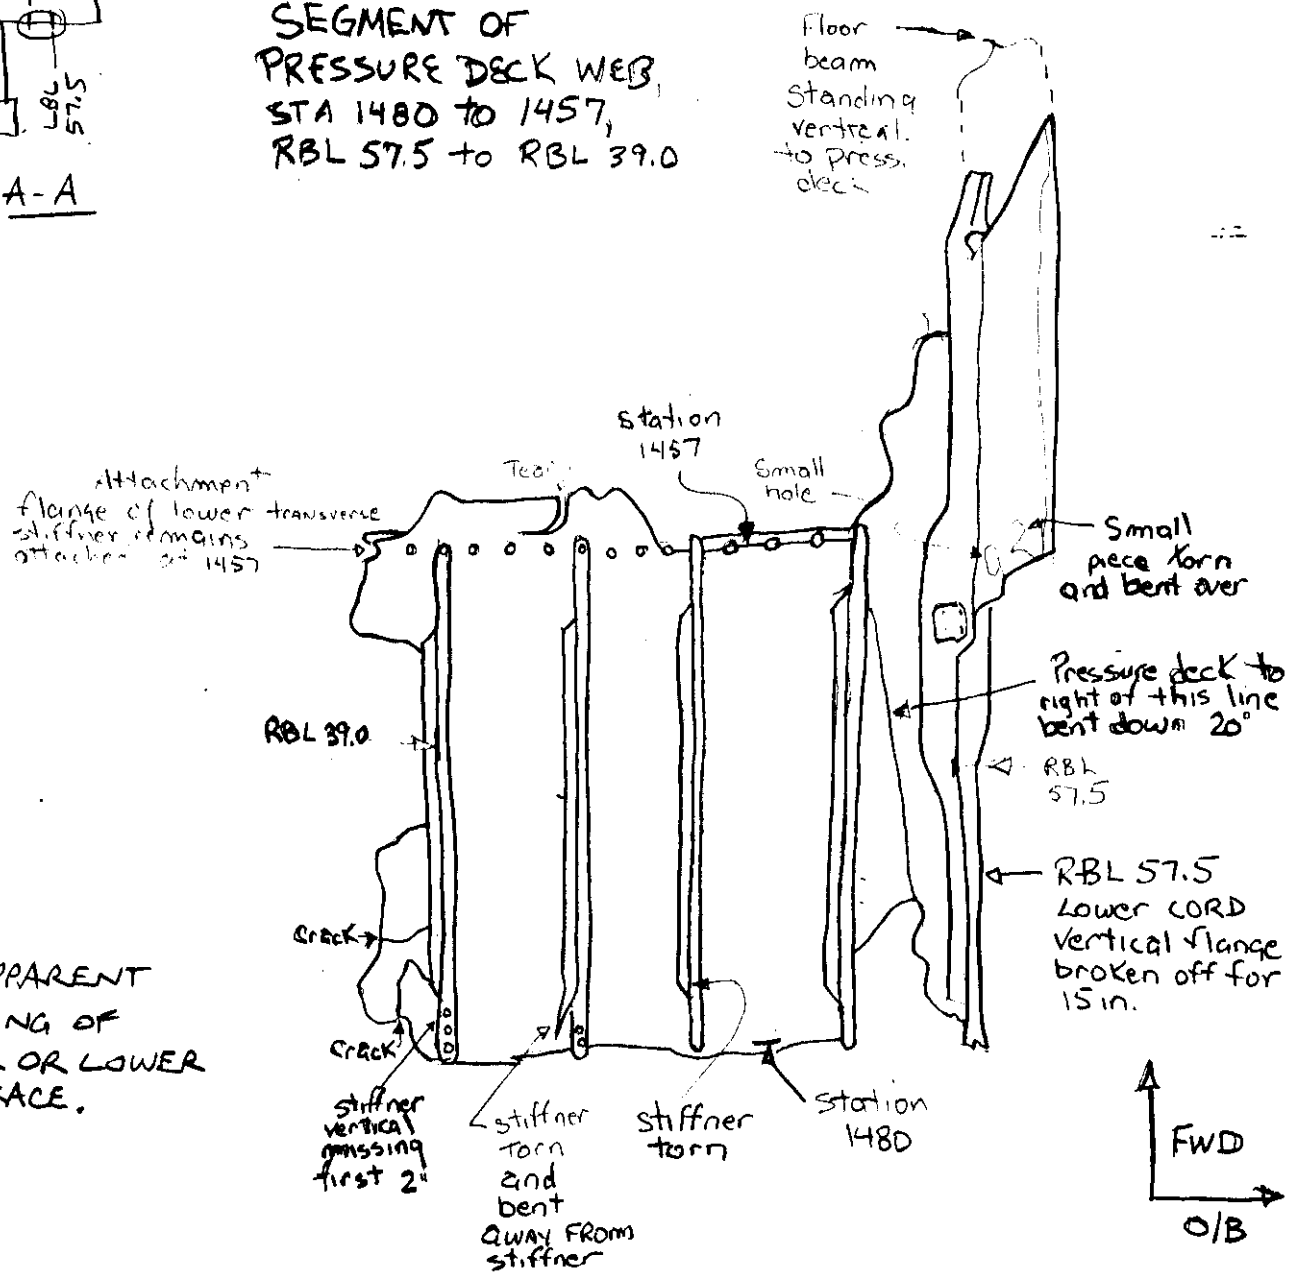 LBL
57.5
A-A
SEGMENT OF
PRESSURE DECK WEB,
STA 1480 to 1457,
RBL 57.5 to RBL 39.0
Floor
beam
Standing
vertical
to press.
deck
Station
1457
Tear
Small
hole
Attachment
flange of lower transverse
stiffner remains
attached at 1457
Small
piece torn
and bent over
Pressure deck to
right of this line
bent down 20°
RBL 39.0
RBL
57.5
RBL 57.5
Lower CORD
vertical flange
broken off for
15 in.
Crack
Crack
PPARENT
NG OF
OR LOWER
FACE.
stiffner
vertical
missing
first 2"
stiffner
torn
and
bent
away FROM
stiffner
stiffner
torn
Station
1480
FWD
O/B